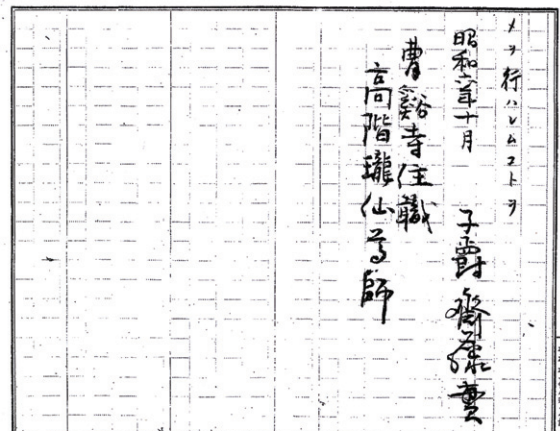 メヲ行ハレムコトヲ
昭和六年十月 子爵齋藤實
曹谿寺住職
高階瓏仙尊師